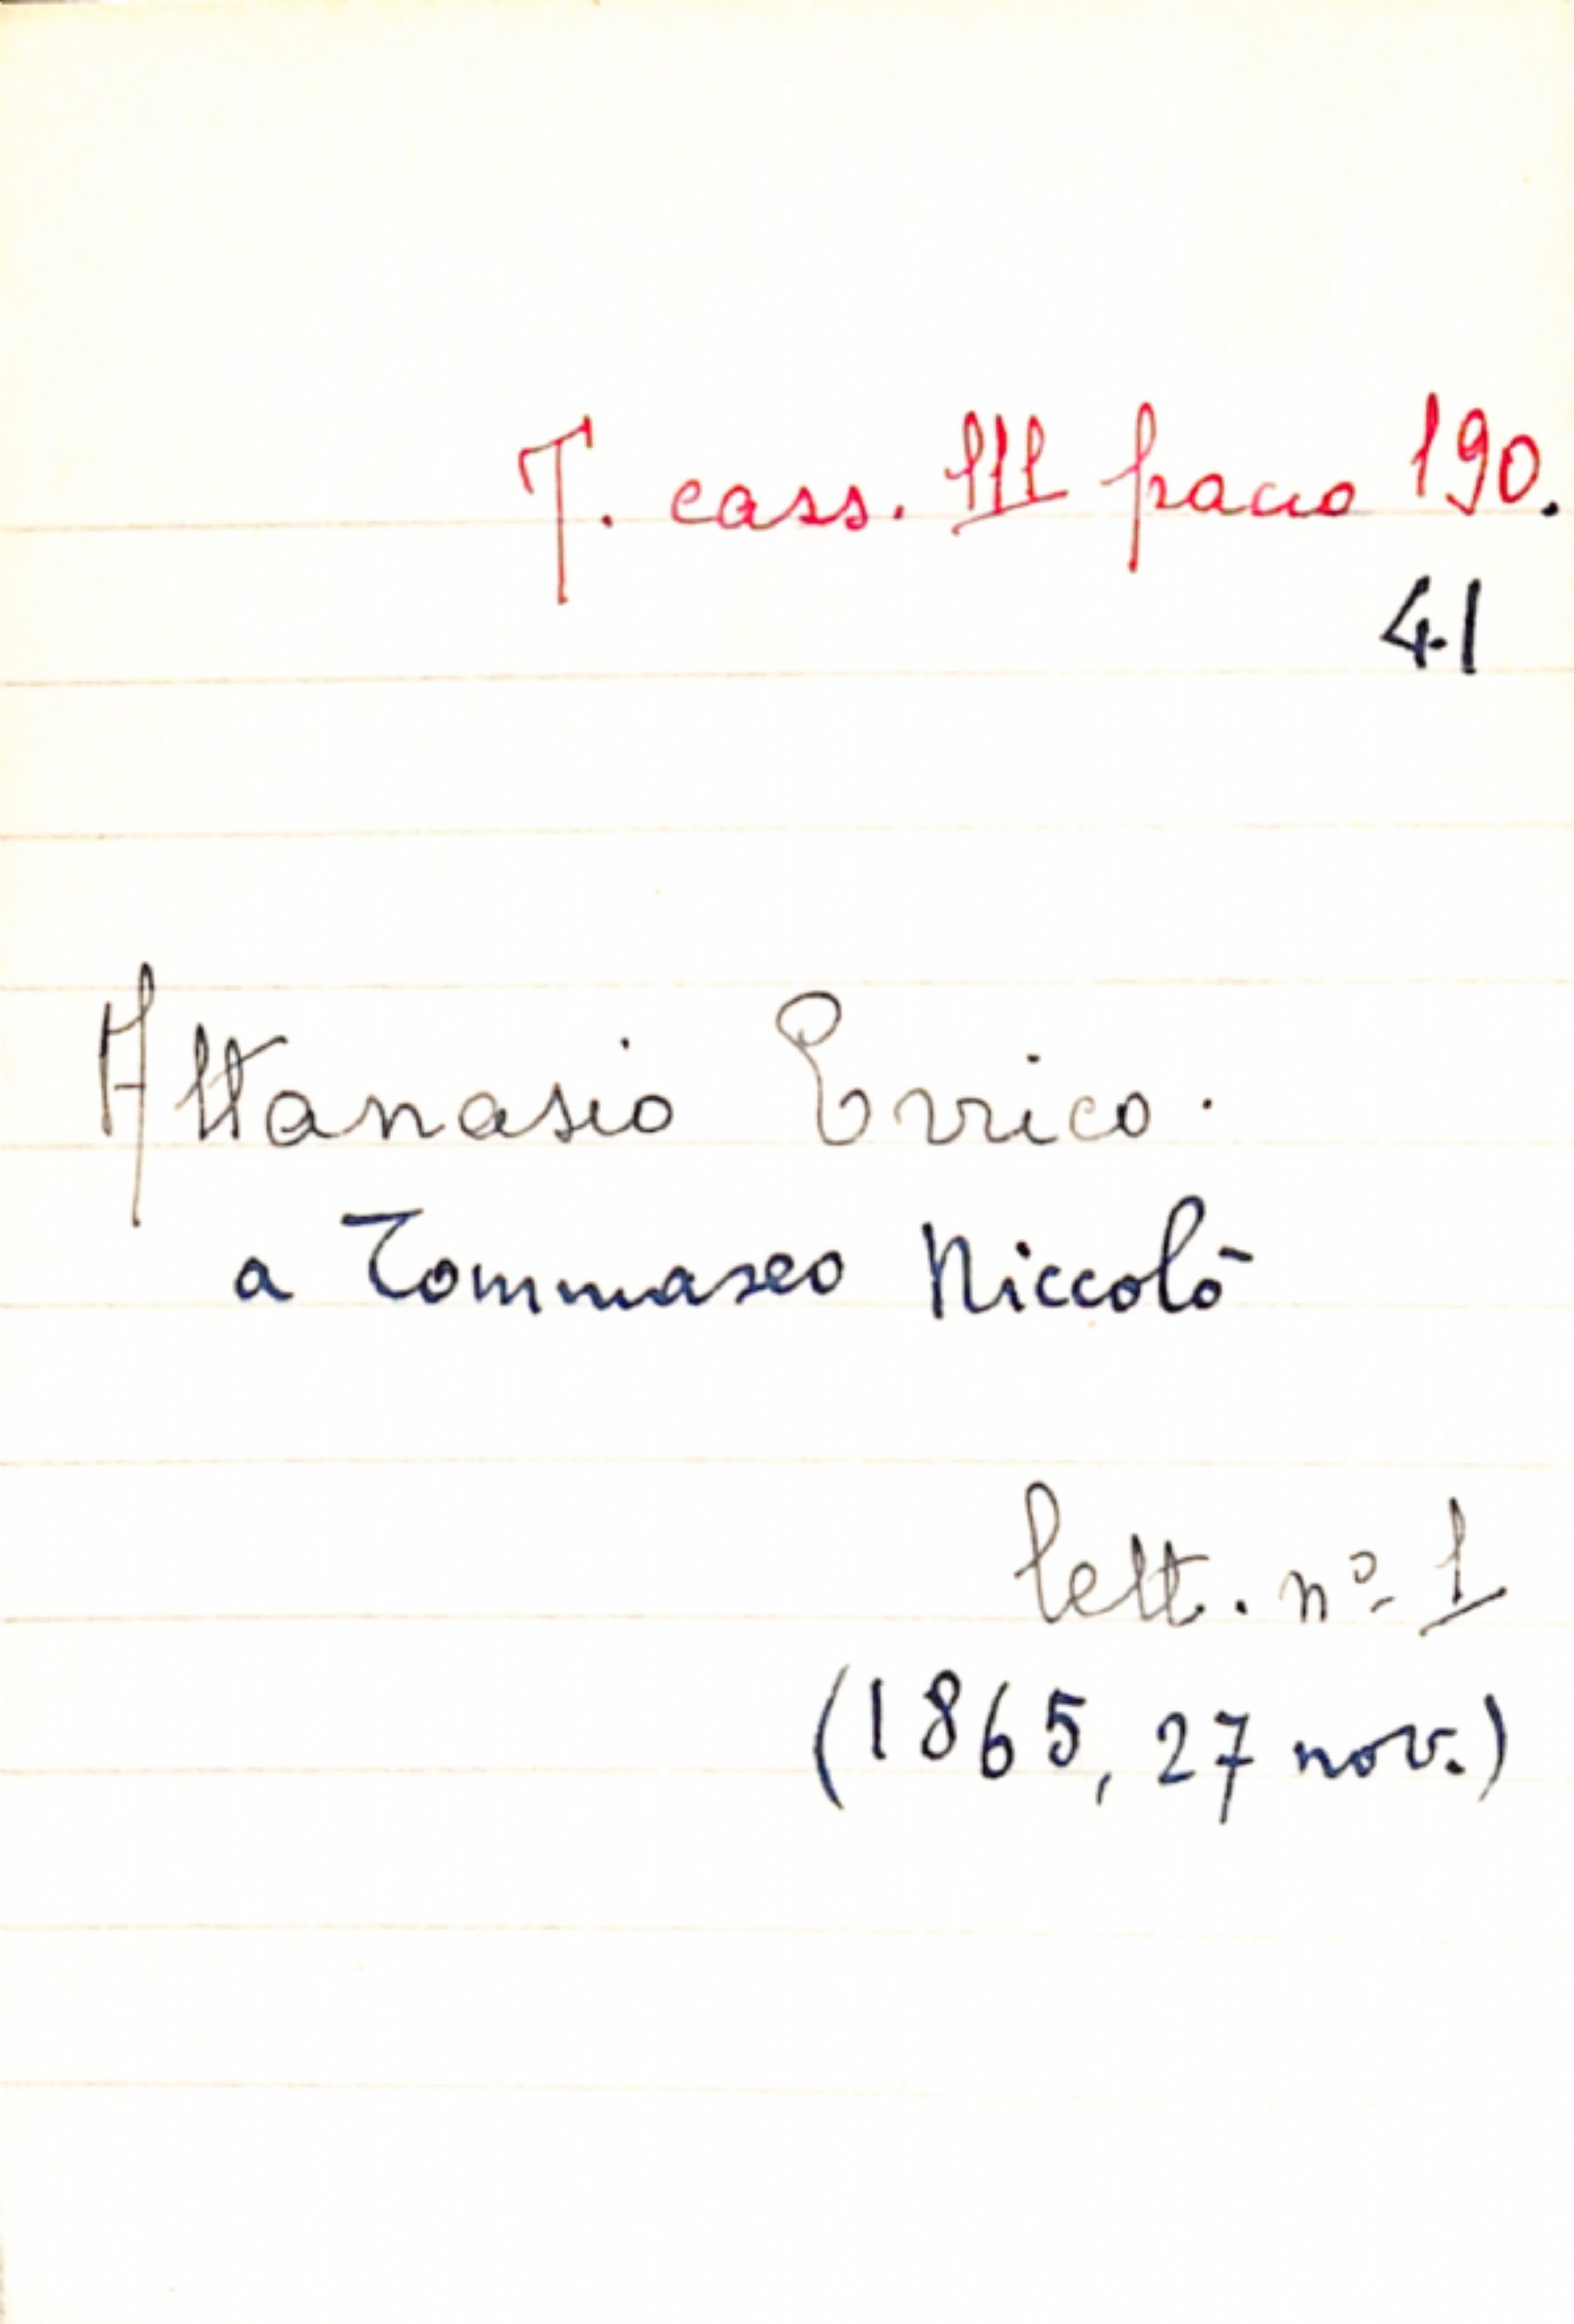 T. cass. III pacco 190.
41
Attanasio Errico.
a Tommaseo Niccolò
lett. nº 1
(1865, 27 nov.)